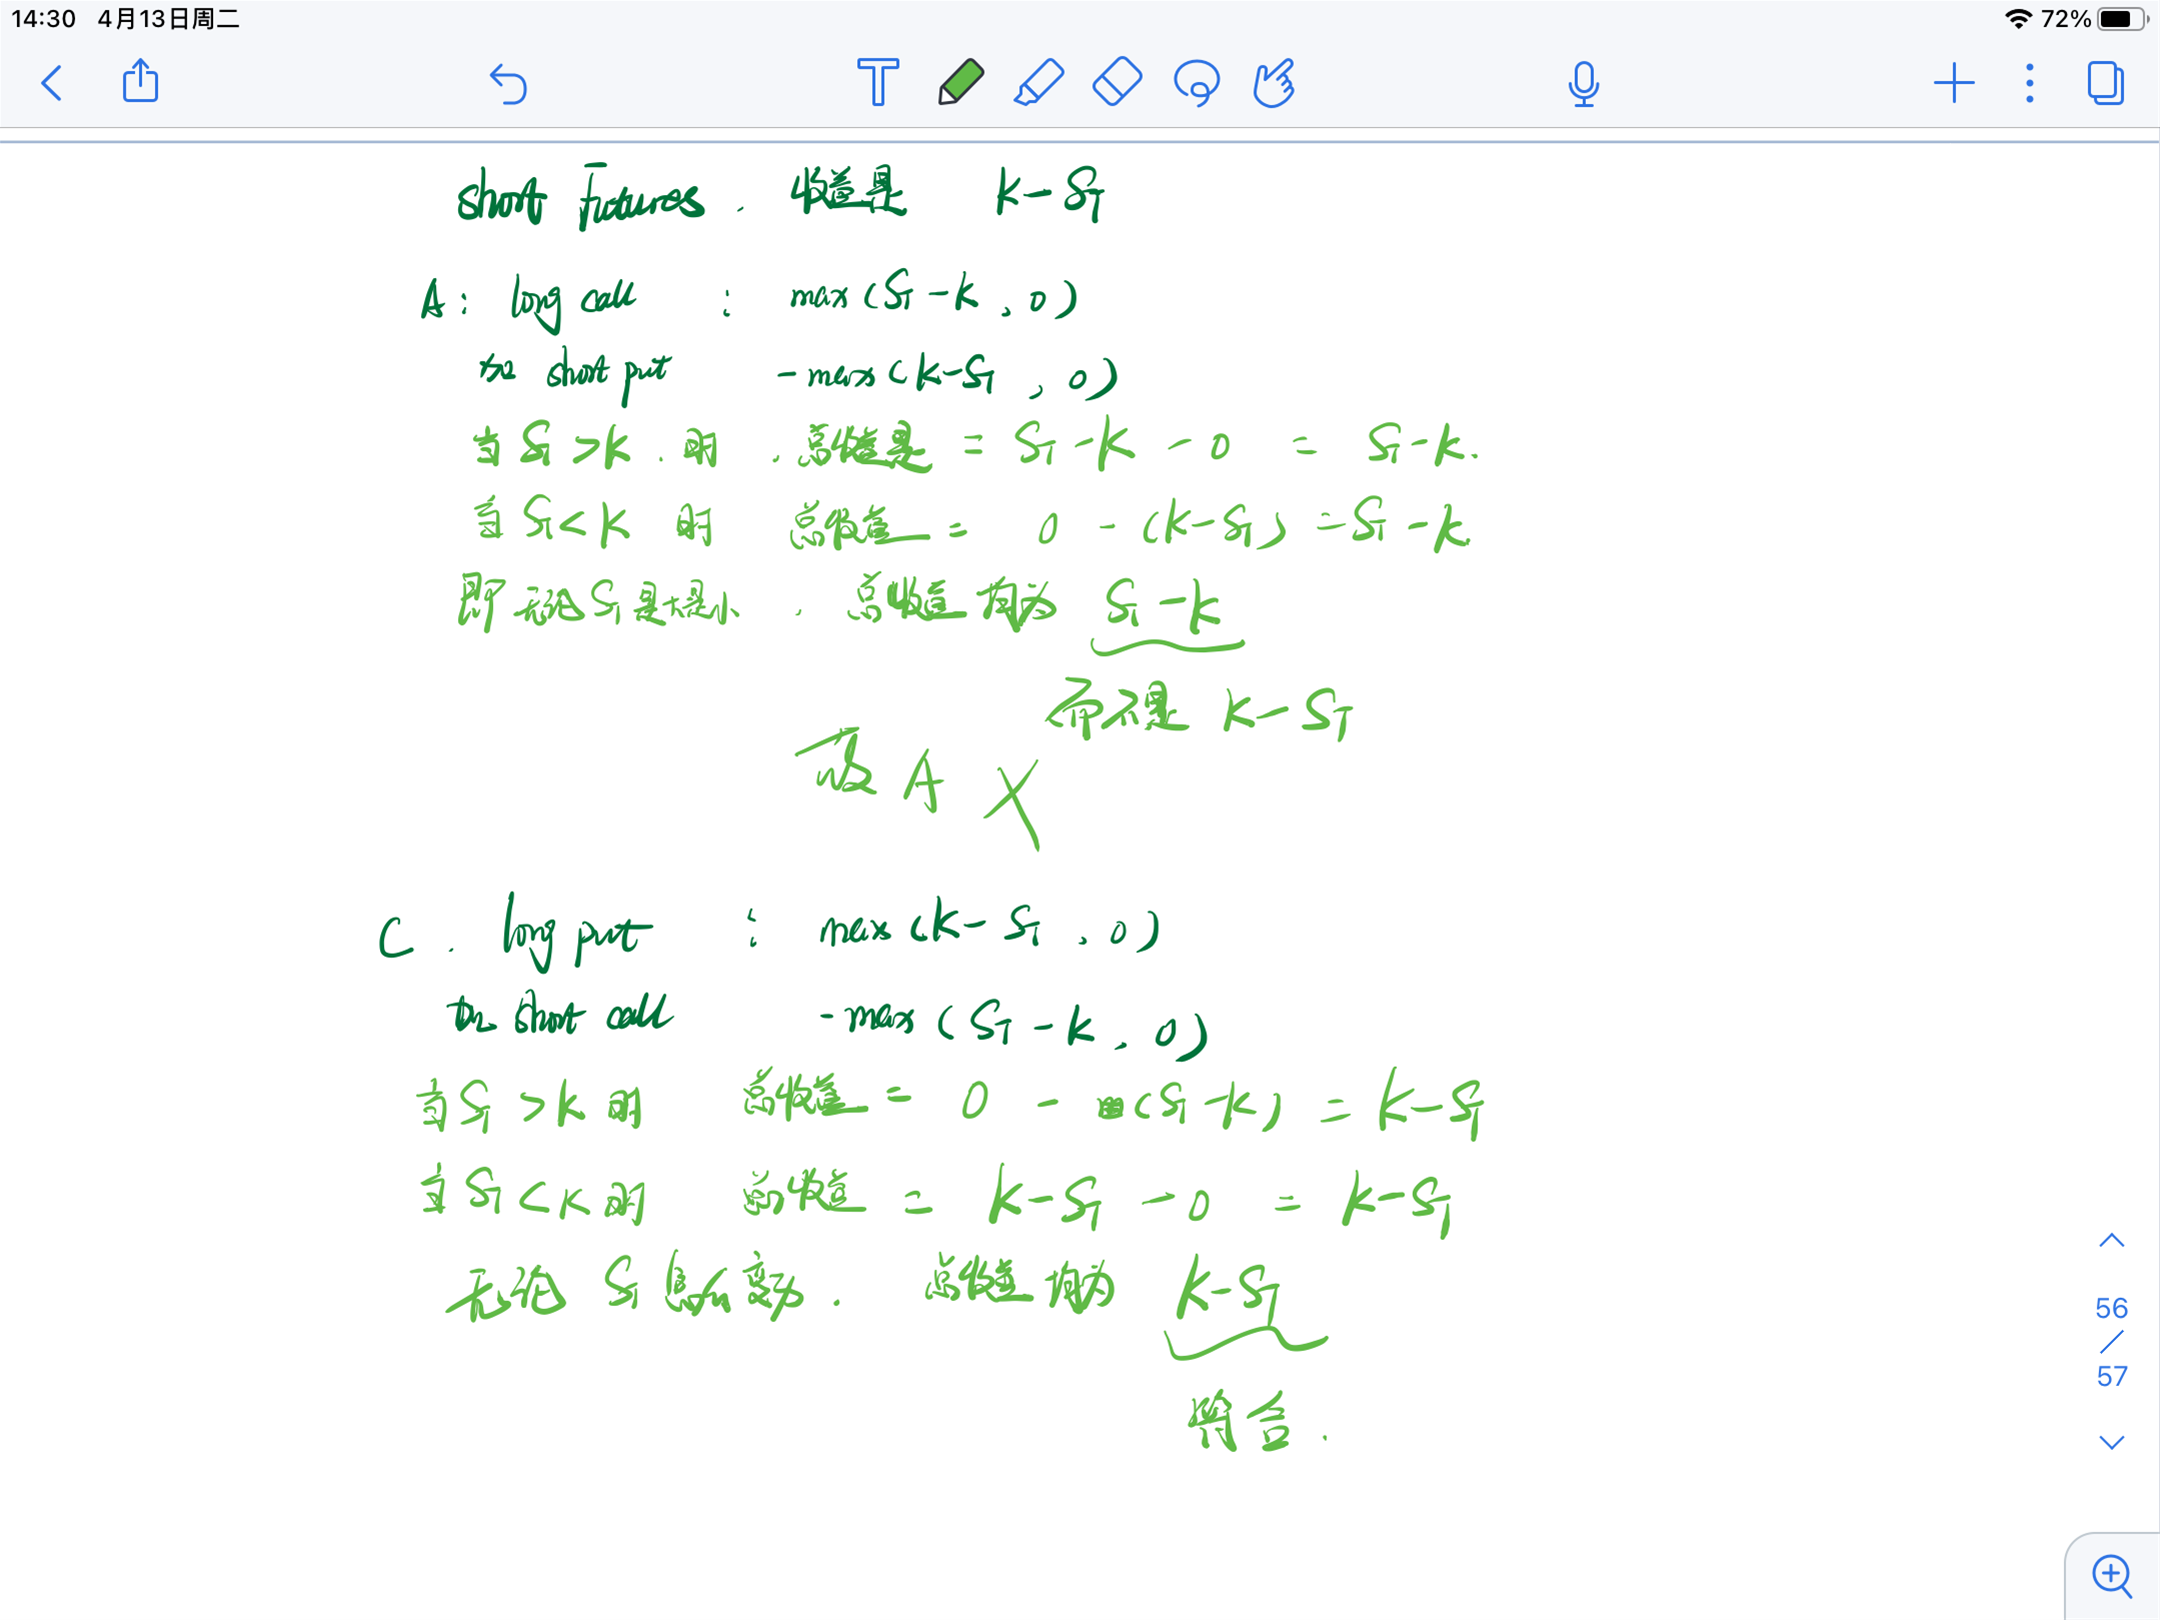 14:30 4月13日周二
72%
short Futures. 收益是 K-S_T
A: long call : max(S_T-K, 0)
加 short put -max(K-S_T, 0)
当 S_T>K. 时. 总收益是 = S_T-K-0 = S_T-K.
当 S_T<K 时 总收益 = 0-(K-S_T) = S_T-K.
即无论S_T是大是小. 总收益均为 S_T-K
而不是 K-S_T
A X
C. long put : max(K-S_T, 0)
加 short call -max(S_T-K, 0)
当 S_T>K 时 总收益 = 0-(S_T-K) = K-S_T
当 S_T<K 时 总收益 = K-S_T-0 = K-S_T
无论 S_T 怎么变动. 总收益均为 K-S_T
符合.
56
/
57